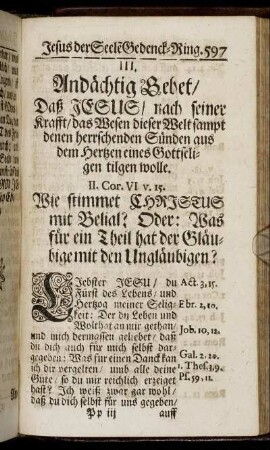 Jesus der Seelē Gedenck-Ring. 597
III.
Andächtig Gebet/
Daß JESUS/ nach seiner
Krafft/ das Wesen dieser Welt sampt
denen herrschenden Sünden aus
dem Hertzen eines Gottseli-
gen tilgen wolle.
II. Cor. VI v. 15.
Wie stimmet CHRISTUS
mit Belial? Oder: Was
für ein Theil hat der Gläu-
bige mit den Ungläubigen?
LIebster JESU/ du Act. 3, 15.
Fürst des Lebens/ und
Hertzog meiner Selig- Ebr. 2, 10.
keit: Der du Leben und
Wolthat an mir gethan/ Job. 10, 12.
und mich dermassen geliebet/ daß
du dich auch für mich selbst dar-
gegeben: Was für einen Danck kan Gal. 2. 20.
ich dir vergelten/ umb alle deine 1. Thes. 1, 9.
Güte/ so du mir reichlich erzeiget Ps. 59, 11.
hast? Ich weiß zwar gar wohl/
daß du dich selbst für uns gegeben/
Pp iij auff